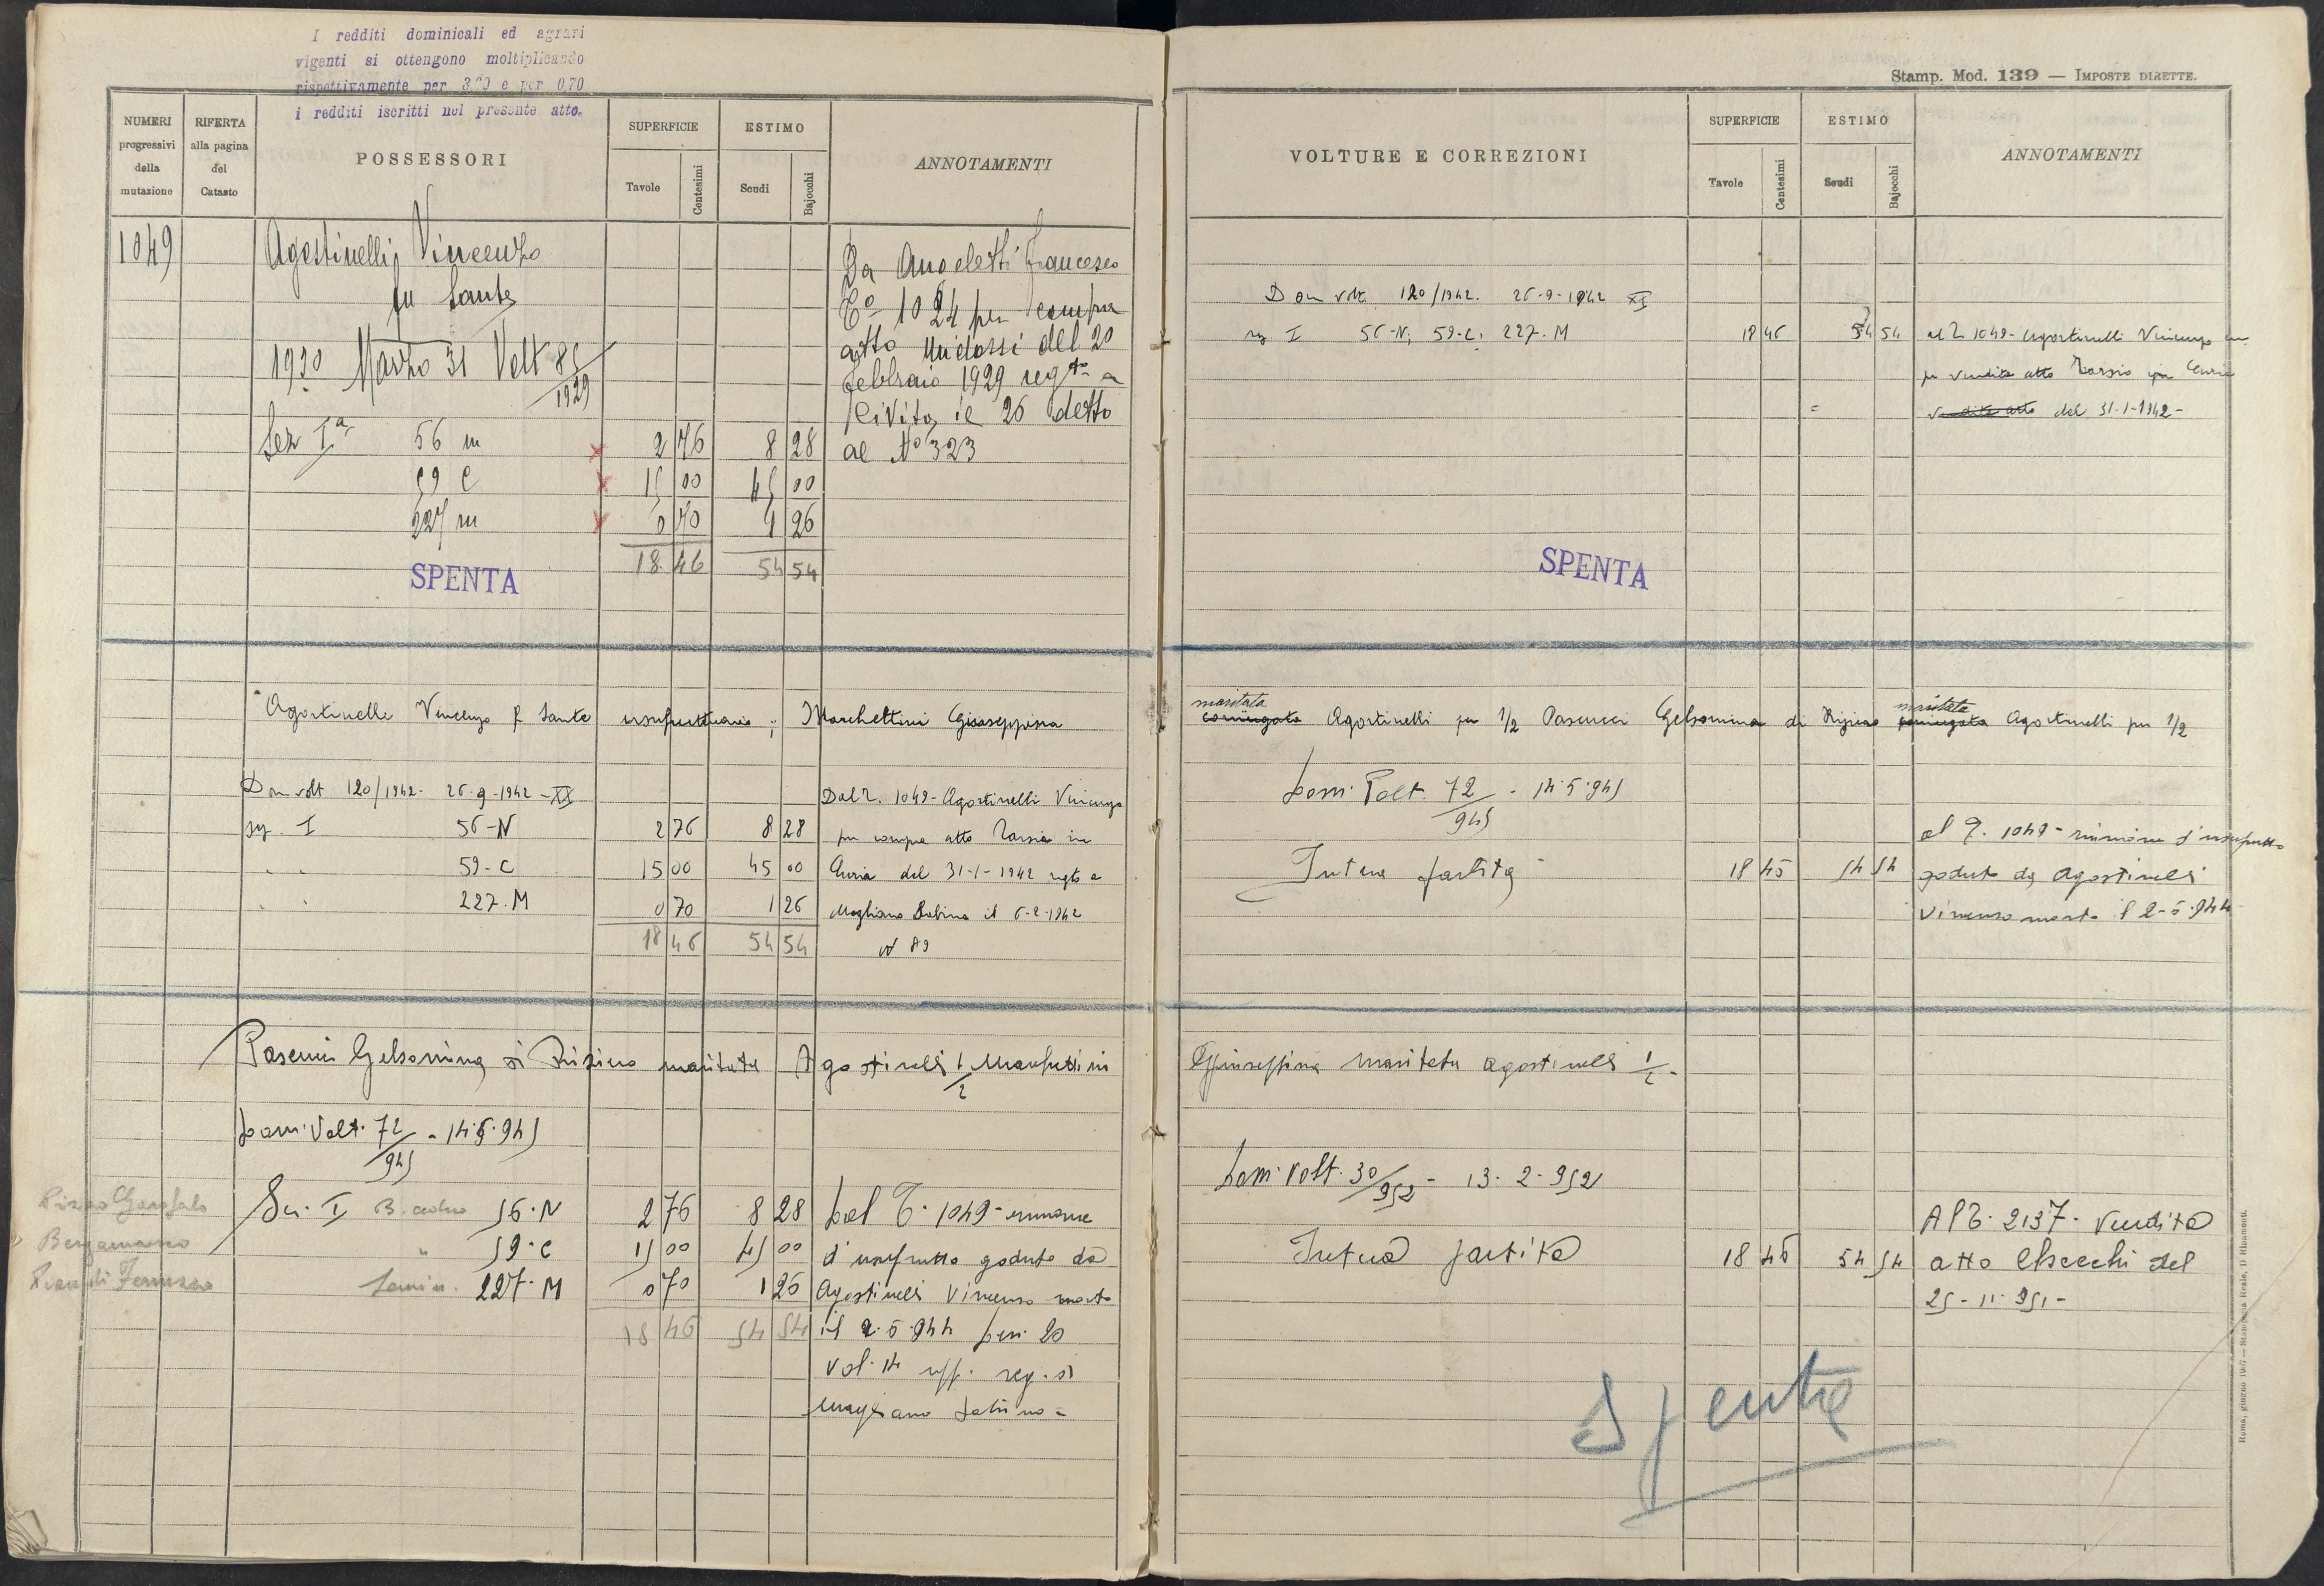 I redditi dominicali ed agrari
vigenti si ottengono moltiplicando
rispettivamente per 3,20 e per 0,70
i redditi iscritti nel presente atto.
NUMERI progressivi della mutazione
RIFERTA alla pagina del Catasto
POSSESSORI
SUPERFICIE
Tavole Centesimi
ESTIMO
Scudi Bajocchi
ANNOTAMENTI
1049 Agostinelli Vincenzo
fu Sante
1930 Marzo 31 Volt 85/1929
Sez Iª 56 m 2 76 8 28
59 C 15 00 45 00
227 m 0 70 1 26
18 46 54 54
SPENTA
Da Angeletti Francesco
Tº 1024 per compra
atto Midossi del 20
febbraio 1929 regto a
Civita, il 26 detto
al Nº 323
Agostinelli Vincenzo f Sante usufruttuario; Marchettini Giuseppina
Dom volt 120/1942 - 26-9-1942 - XX
sez. I 56-N 2 76 8 28
59-C 15 00 45 00
227-M 0 70 1 26
18 46 54 54
Dal T. 1049 - Agostinelli Vincenzo
per compra atto Tarsia in
Curia del 31-1-1942 regto a
Magliano Sabina il 6-2-1942
N 89
Pascucci Gelsomina di Riziero maritata Agostinelli 1/2 Marchettini
Dom. Volt. 72/945 - 14.6.945
Pizzo Garofalo
Bergamasco
Sez. I 56-N 2 76 8 28
" 59-C 15 00 45 00
Semin. 227-M 0 70 1 26
18 46 54 54
Dal T. 1049 - riunione
d'usufrutto goduto da
Agostinelli Vincenzo morto
il 2.6.944 Den. 20
Vol. 14 uff. reg. di
Magliano Sabino -
Stamp. Mod. 139 — IMPOSTE DIRETTE.
VOLTURE E CORREZIONI
SUPERFICIE
Tavole Centesimi
ESTIMO
Scudi Bajocchi
ANNOTAMENTI
Dom volt 120/1942. 26-9-1942 XX
sez I 56-N; 59-C; 227-M 18 46 54 54
al T 1049 - Agostinelli Vincenzo
per vendita atto Tarsia in Curia
vendita atto del 31-1-1942 -
SPENTA
maritata maritata
coniugata Agostinelli per 1/2 Pascucci Gelsomina di Riziero coniugata Agostinelli per 1/2
Dom. Volt. 72/945 - 14.6.945
Intera partita 18 46 54 54
al T. 1049 - riunione d'usufrutto
goduto da Agostinelli
Vincenzo morto il 2-6-944
Giuseppina maritata Agostinelli 1/2 -
Dom. Volt. 30/952 - 13.2.952
Intera partita 18 46 54 54
Al T. 2137. Vendita
atto Checchi del
25-11-951 -
Spenta